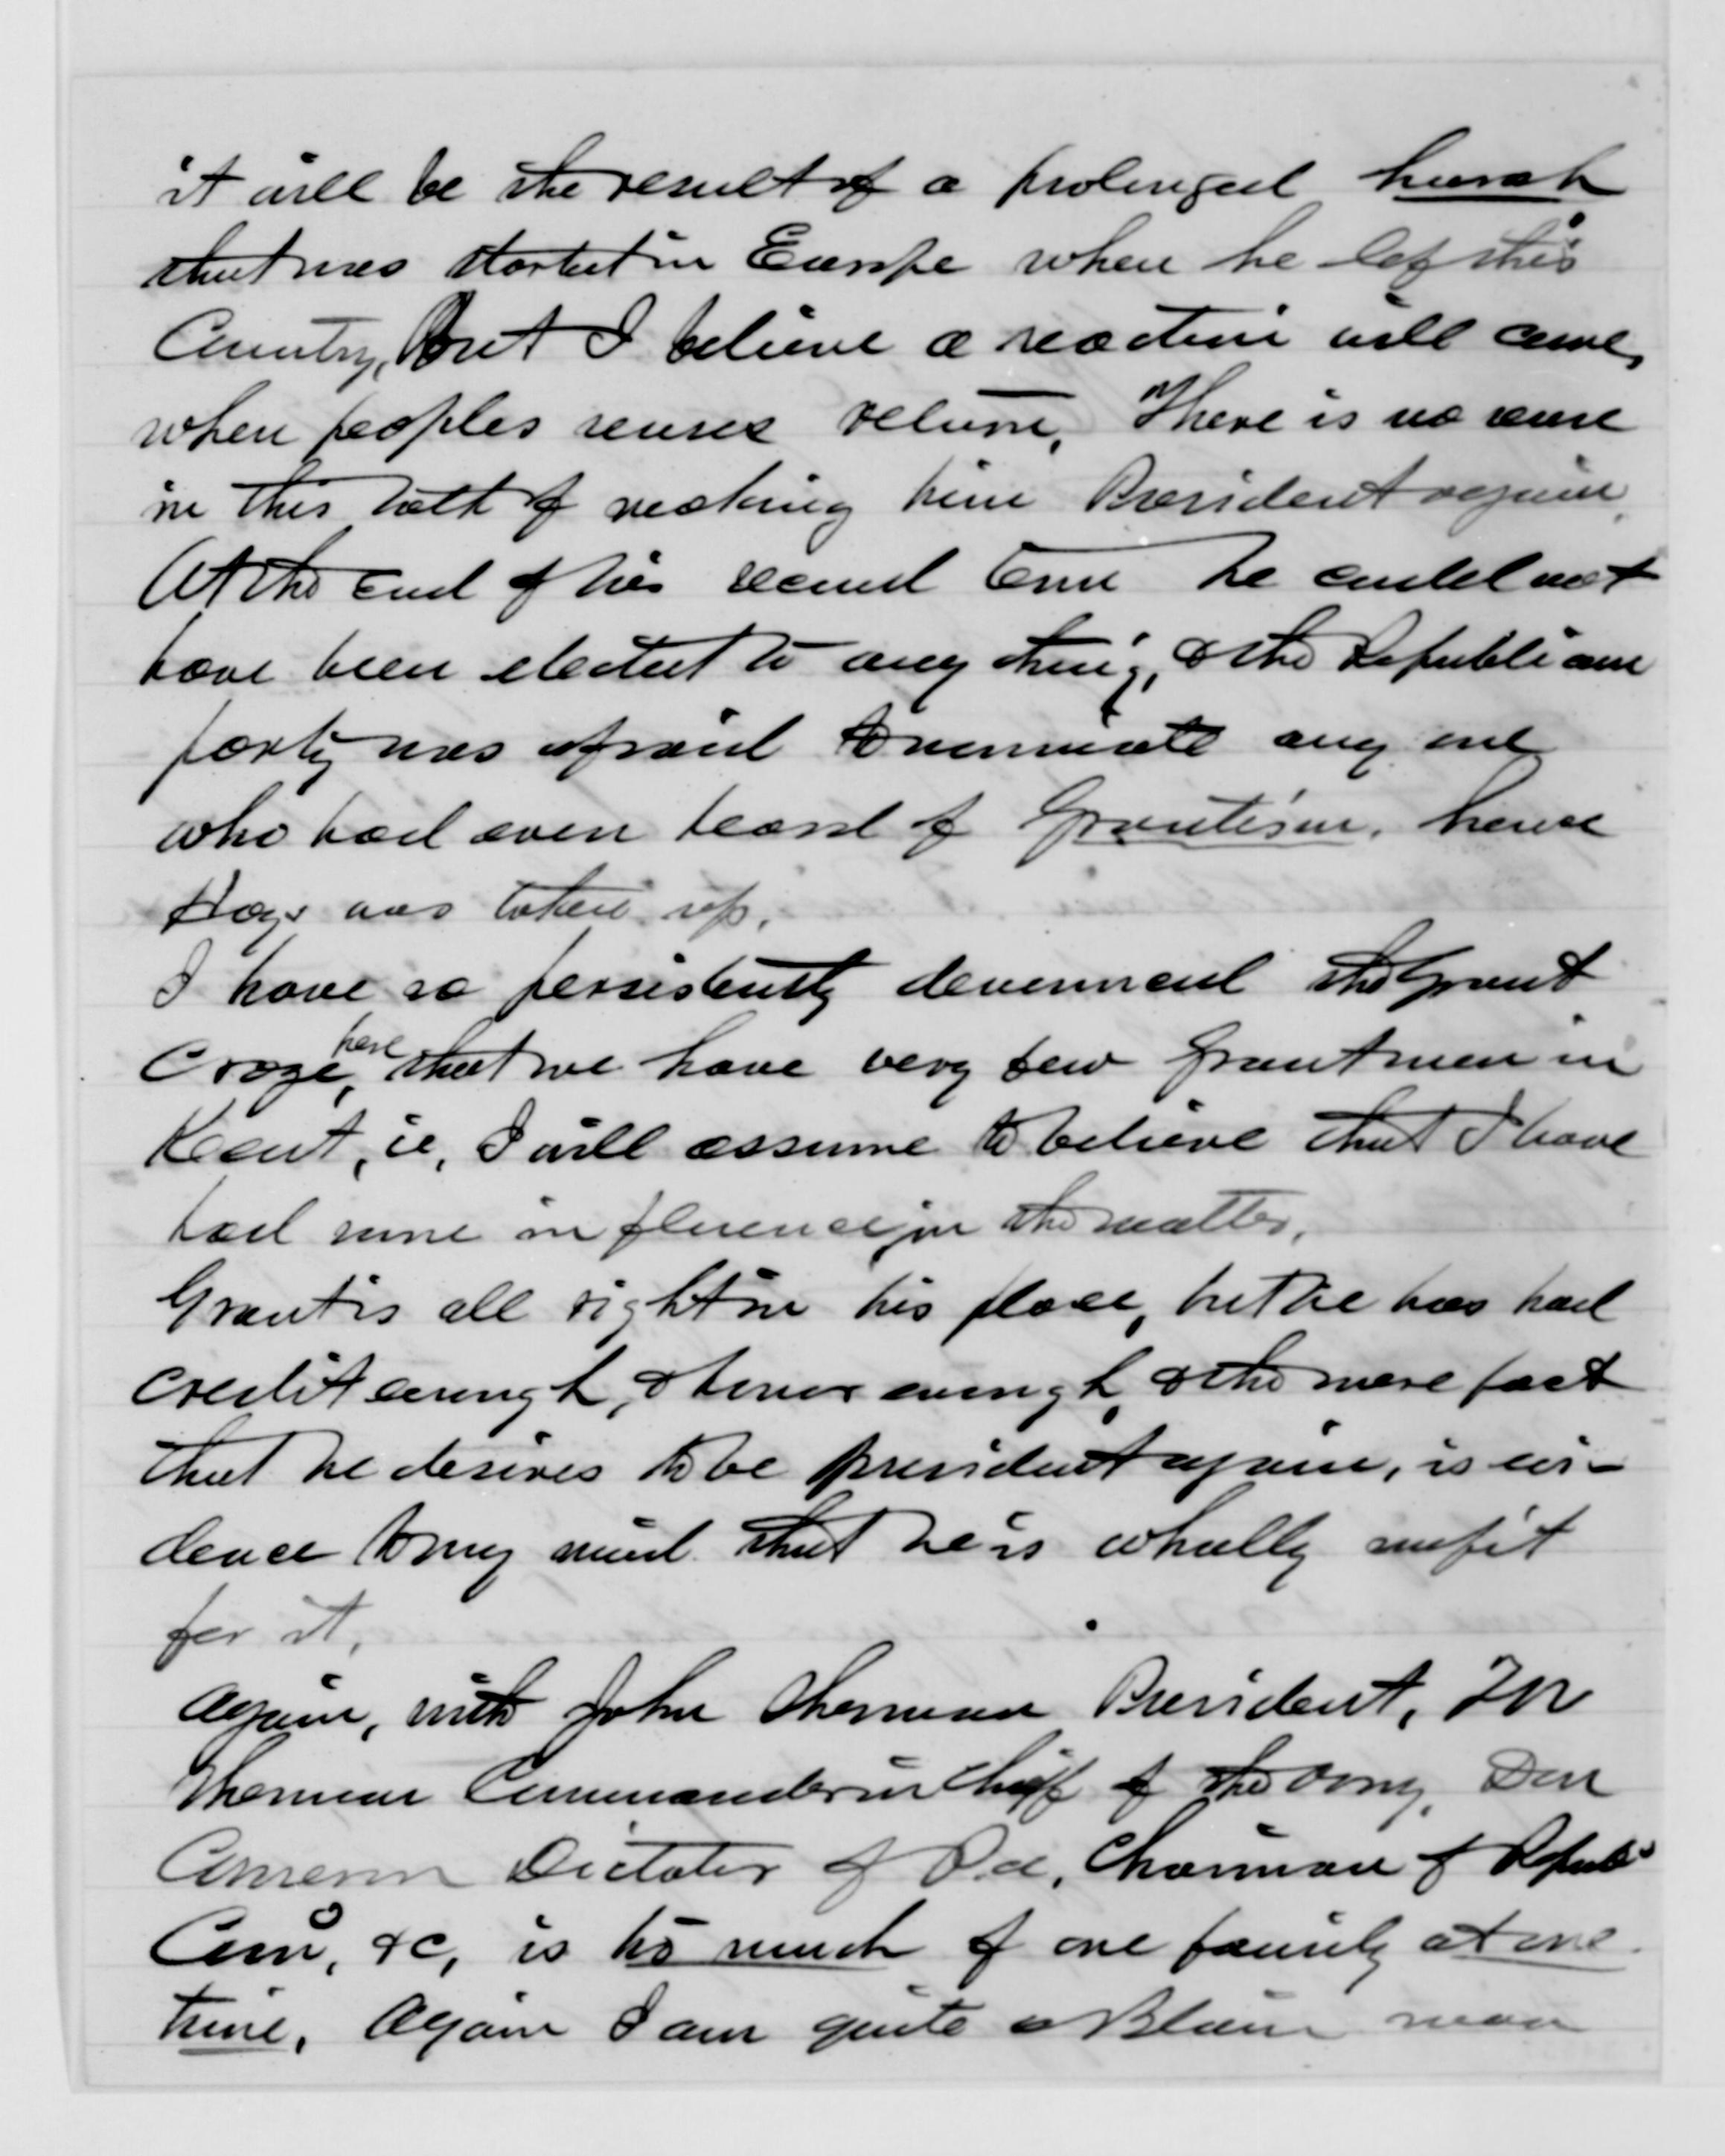 it will be the result of a prolonged hurah
that was started in Europe when he left this
Country, But I believe a reaction will come,
when peoples senses return, There is no sense
in this talk of making him President again,
At the end of his second term he could not
have been elected to any thing, & the Republican
party was afraid to nominate any one
who had even heard of Grantism, hence
Hays was taken up.
I have so persistently denounced the Grant
Craze, here that we have very few Grant men in
Kent, ie, I will assume to believe that I have
had some influence in the matter,
Grant is all right in his place, but he has had
credit enough, & honor enough, & the mere fact
that he desires to be president again, is evi-
dence to my mind that he is wholly unfit
for it,
Again, with John Sherman President, Wm
Sherman Commander in Chief of the army, Don
Cameron Dictator of Pa, Chairman of Repub
Com, &c, is to much of one family at one
time, Again I am quite a Blaine man